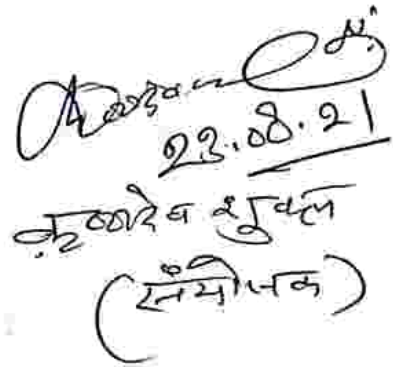 23.08.21
कृष्णदेव शुक्ल
(संयोजक)